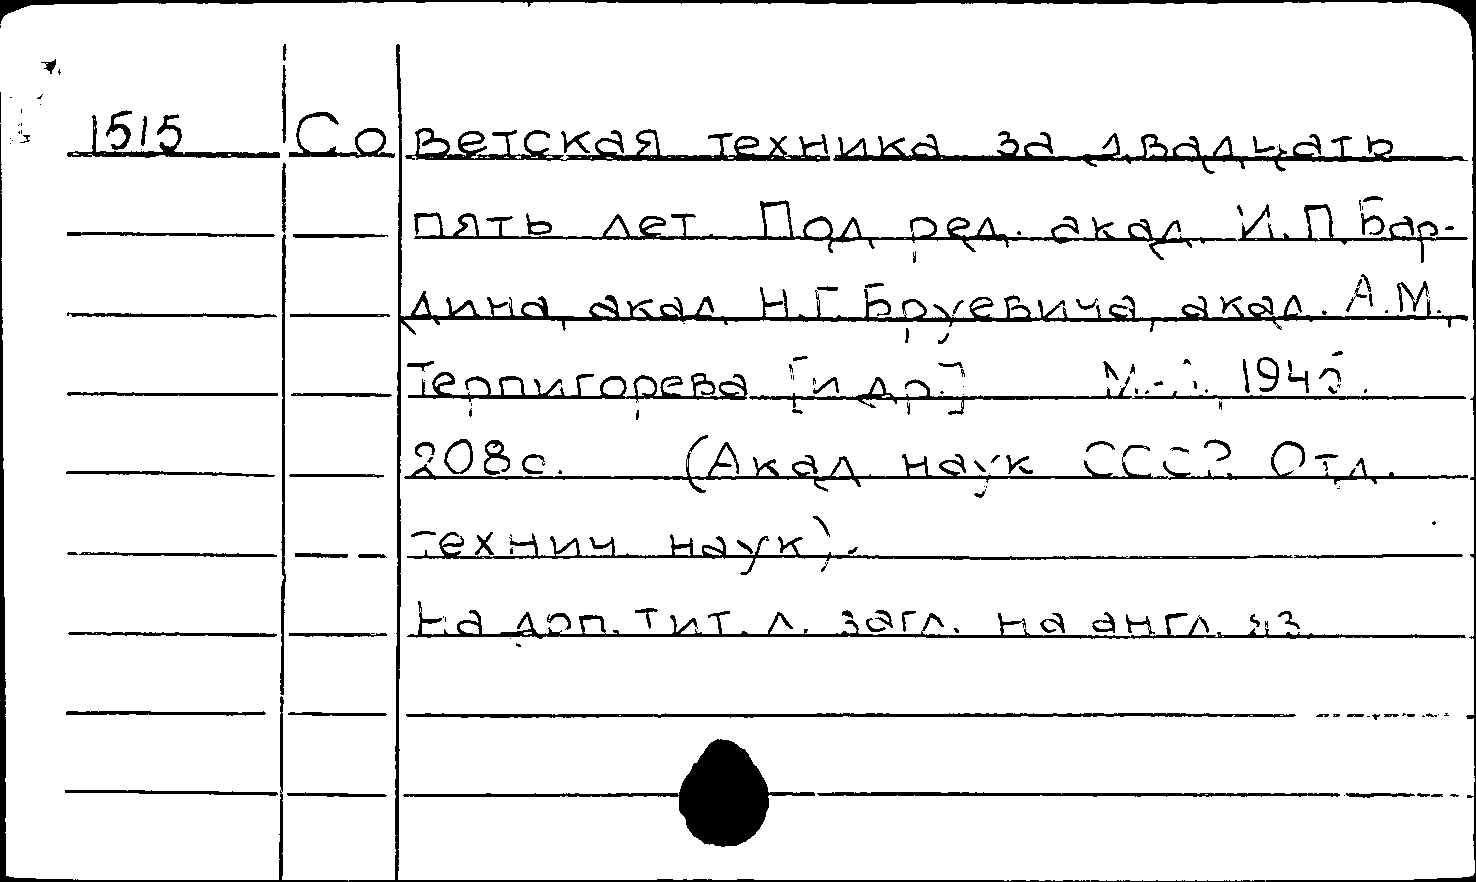 1515 Советская техника за двадцать
пять лет. Под ред. акад. И.П. Бар-
дина, акад. Н.Г. Бруевича, акад. А.М.
Терпигорева [и др.] 1945.
208 с. (Акад. наук СССР. Отд.
технич. наук).
На доп. тит. л. загл. на англ. яз.